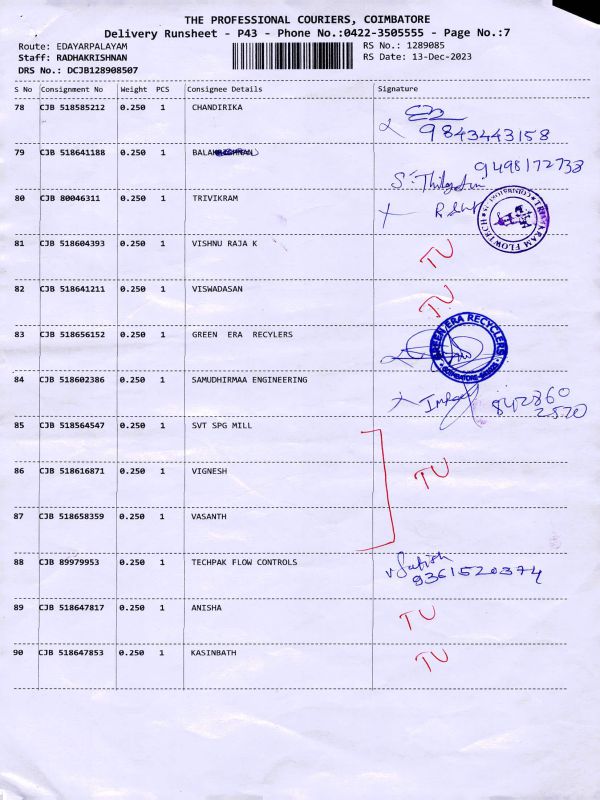 THE PROFESSIONAL COURIERS, COIMBATORE
Delivery Runsheet - P43 - Phone No.:0422-3505555 - Page No.:7
Route: EDAYARPALAYAM RS No.: 1289085
Staff: RADHAKRISHNAN RS Date: 13-Dec-2023
DRS No.: DCJB128908507
S No Consignment No Weight PCS Consignee Details Signature
78 CJB 518585212 0.250 1 CHANDIRIKA
9843443158
79 CJB 518641188 0.250 1
9498172733
80 CJB 80046311 0.250 1 TRIVIKRAM
TRIVIKRAM FLOWTECH COIMBATORE
81 CJB 518604393 0.250 1 VISHNU RAJA K TU
82 CJB 518641211 0.250 1 VISWADASAN TU
83 CJB 518656152 0.250 1 GREEN ERA RECYLERS
GREEN ERA RECYCLERS
84 CJB 518602386 0.250 1 SAMUDHIRMAA ENGINEERING
842860
2520
85 CJB 518564547 0.250 1 SVT SPG MILL
86 CJB 518616871 0.250 1 VIGNESH TU
87 CJB 518658359 0.250 1 VASANTH
88 CJB 89979953 0.250 1 TECHPAK FLOW CONTROLS Satish
9361520374
89 CJB 518647817 0.250 1 ANISHA TU
90 CJB 518647853 0.250 1 KASINBATH TU